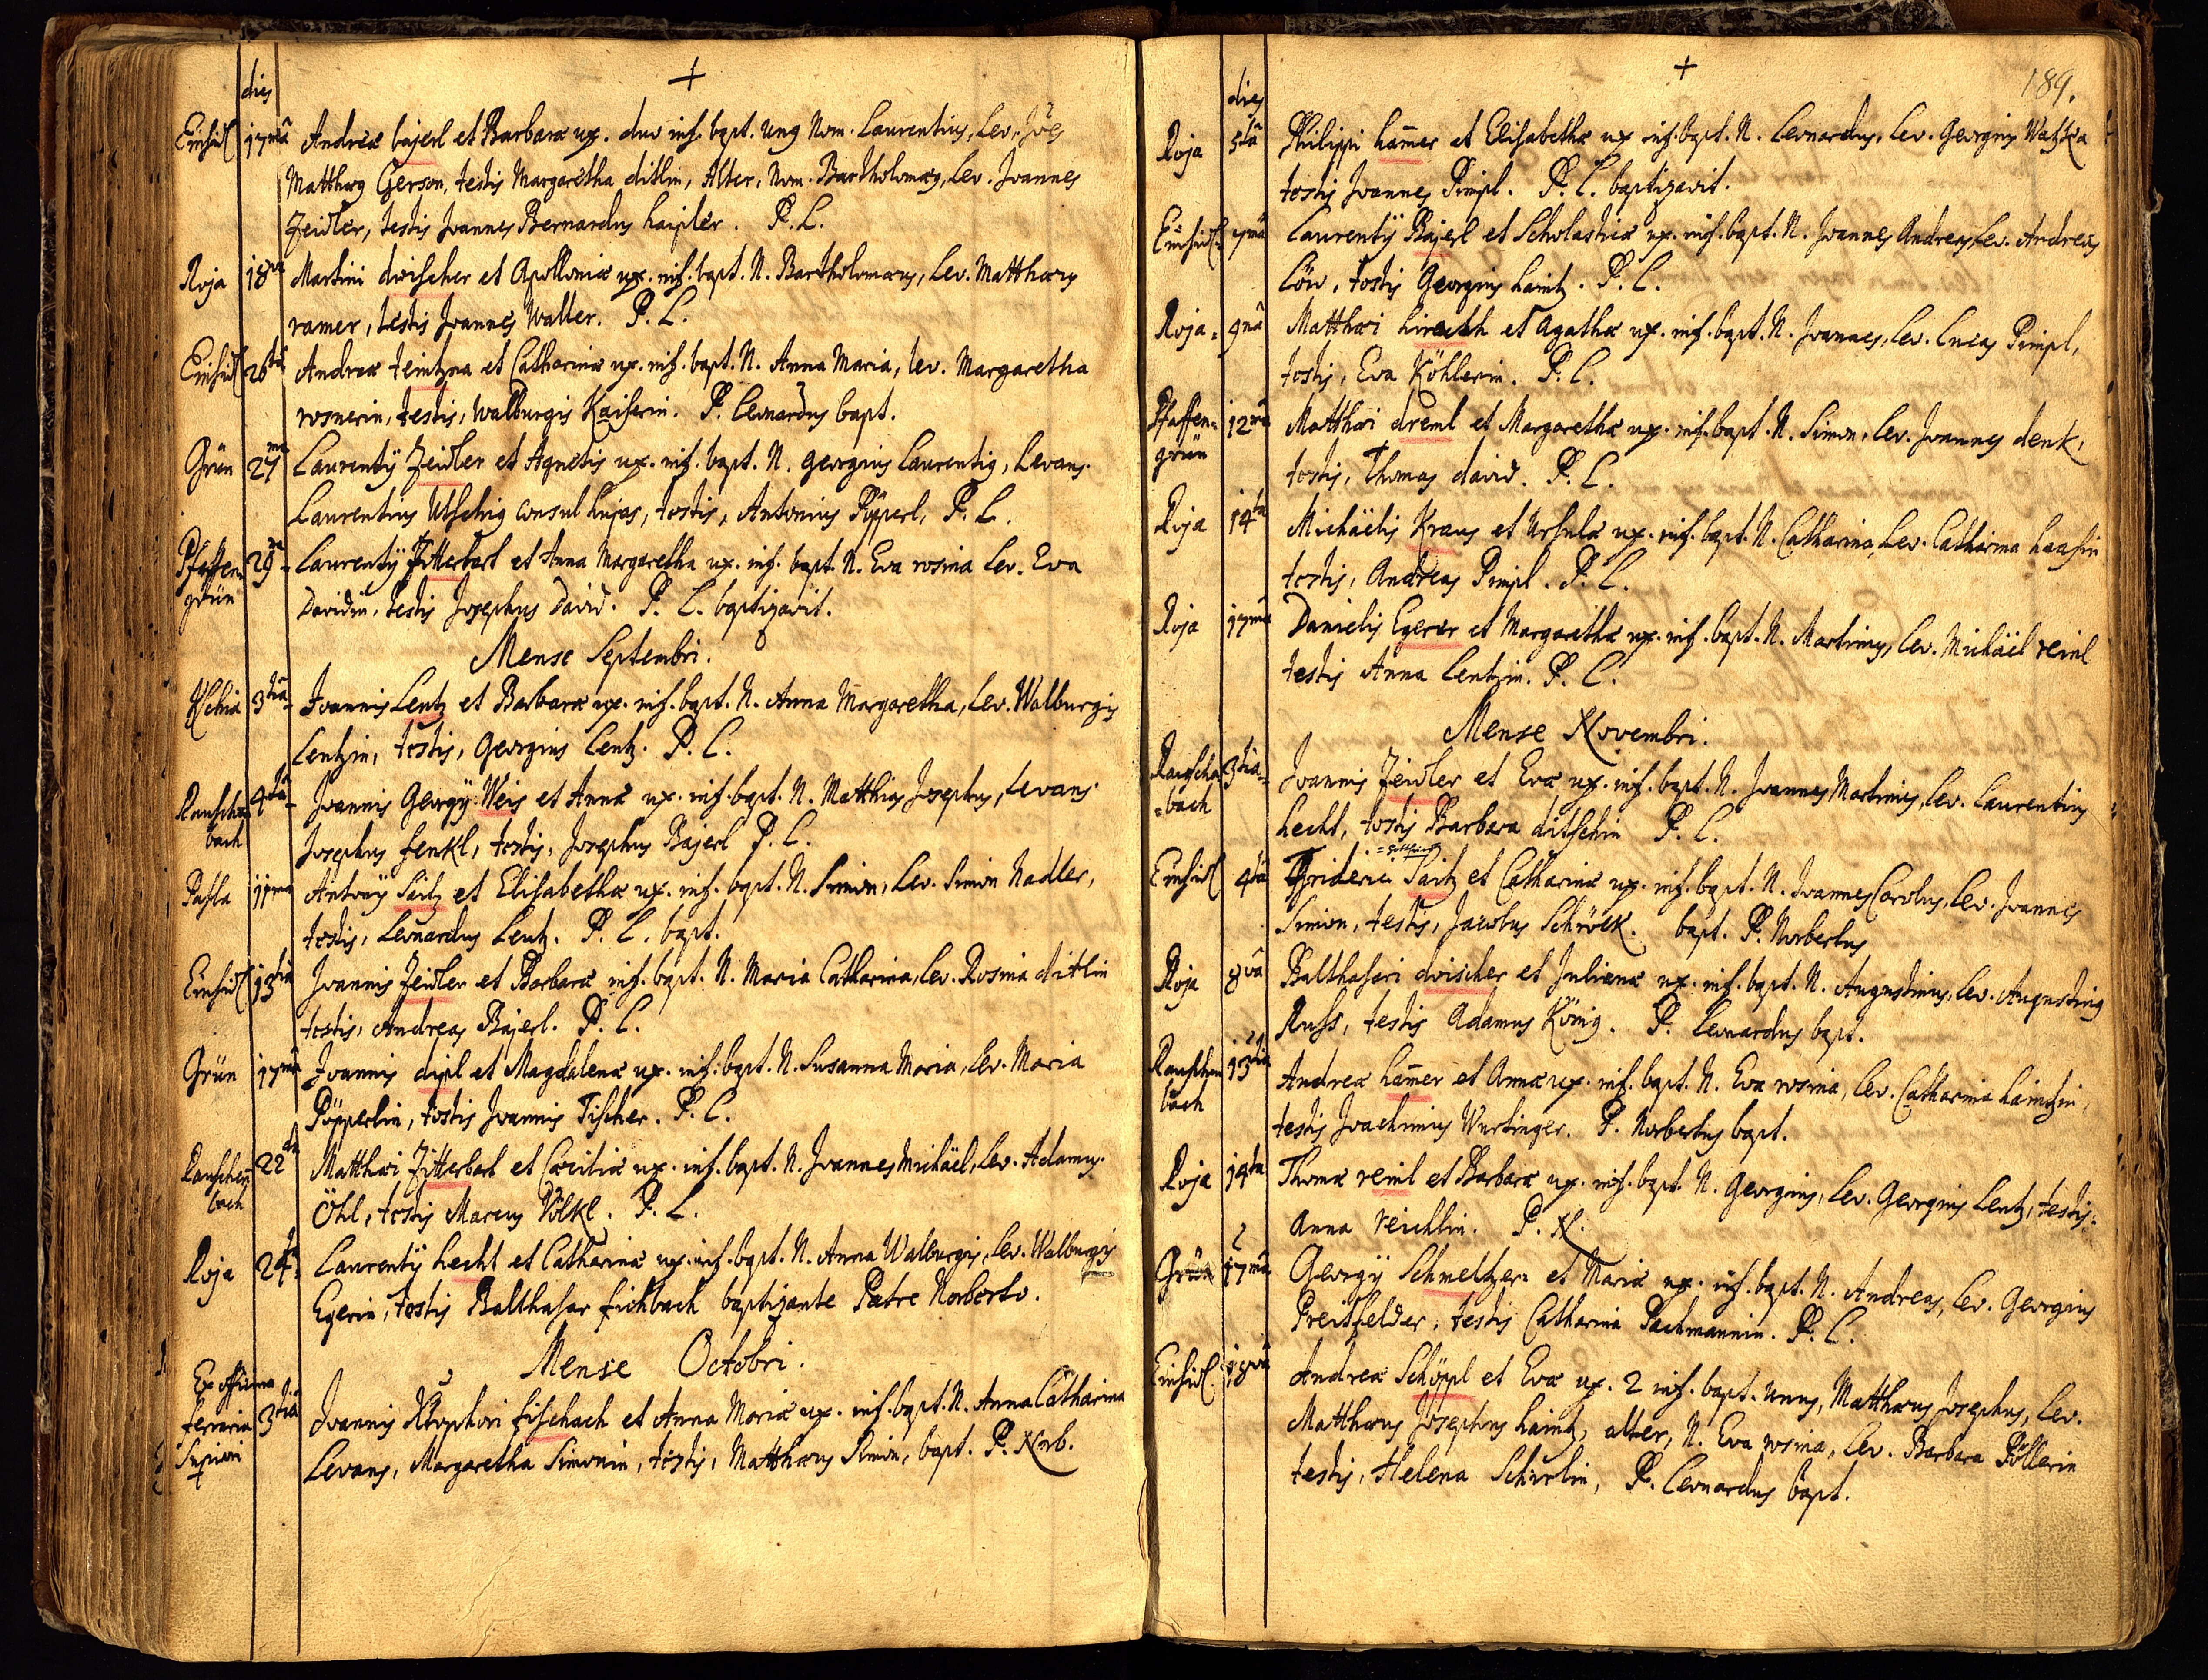 dies
+
Einsidl 17mâ Andreæ bajerl et Barbaræ ux. duo inf. bapt. ung Nom. Laurentius, Lev. Jões
Matthæg Gerson, testis Margaretha ditlin, Alter, Nom. Bartholomæg, Lev. Joannes
Zeidler, testis Joannes Bernardus haipler. P. L.
Roja 18va Martini drischer et Apolloniæ ux. inf. bapt. N. Bartholomæus, Lev. Matthæus
ramer, testis Joannes Waller. P. L.
Einsidl 26ta Andreæ teintzna et Catharinæ ux. inf. bapt. N. Anna Maria, lev. Margaretha
rosnerin, testis, walburgis Kaiserin. P. Leonardus bapt.
Grün 27ma Laurentÿ Zeidler et Agnetis ux. inf. bapt. N. georgius Laurentig, Levans.
Laurentius Utschig consul hujas, testis, Antonius Pöpperl, P. L.
Pfaffen=
grün 29na Laurentÿ Zitterbart et Anna Margaretha ux. inf. bapt. N. Eva rosina Lev. Eva
Davidin, testis Josephus David. P. L. baptizavit.
Mense Septembri.
3tia Joannis Lentz et Barbaræ ux. inf. bapt. N. Anna Margaretha, Lev. Walburgis
Lentzin, testis, georgius Lentz. P. L.
Rauschen
bach 4ta Joannis Georgÿ Weis et Annæ ux. inf. bapt. N. Matthias Josephus, Levans.
Josephus fenkl, testis, Josephus Bajerl P. L.
Pasla 11ma Antonÿ Saitz et Elisabethæ ux. inf. bapt. N. Simon, Lev. Simon Nadler,
testis, Leonardus Lentz. P. L. bapt.
Einsidl 13tia Joannis Zeidler et Barbaræ inf. bapt. N. Maria Catharina, Lev. Rosina ditlin
testis, Andreas Bajerl. P. L.
Grün 17mâ Joannis dipl et Magdalenæ ux. inf. bapt. N. Susanna Maria, Lev. Maria
Pöpperlin, testis Joannis Fischer. P. L.
Rauschen
bach 22da Matthæi Zitterbart et Cæciliæ ux. inf. bapt. N. Joannes Michäel, Lev. Adamus.
Öhl, testis Marcus Völkl. P. L.
Roja 24ta Laurentÿ hecht et Catharinæ ux. inf. bapt. N. Anna Walburgis, Lev. Walburgis
Egerin, testis Balthasar fichbach baptizante Patre Norberto.
Mense Octobri.
Ex officina
ferraria
Superiori 3tiâ Joannis Xstophori fischach et Anna Mariæ ux. inf. bapt. N. Anna Catharina
Levans, Margaretha Simonin, testis, Matthæus Simon, bapt. P. Norb.
189.
+
dies
Roja 5tâ Philippi ham̄er et Elisabethæ ux inf. bapt. N. Leonardus, Lev. Georgius Watzka
testis Joannes Pimpl. P. L. baptizavit.
Einsidl 7mâ Laurentÿ Bajerl et Scholasticæ ux. inf. bapt. N. Joannes Andreas, Lev. Andreas
Löw, testis Georgius haintz. P. L.
Roja 9nâ Matthæi hirath et Agathæ ux. inf. bapt. N. Joannes, Lev. Lucas Pimpl,
testis, Eva Köhlerin. P. L.
Pfaffen=
grün 12mâ Matthæi dreml et Margarethæ ux. inf. bapt. N. Simon, Lev. Joannes denk,
testis, Thomas david. P. L.
Roja 14ta Michäelis Kraus et Ursulæ ux. inf. bapt. N. Catharina, Lev. Catharina haasin
testis, Andreas Pimpl. P. L.
Roja 17mâ Danielis Egerer et Margarethæ ux. inf. bapt. N. Martinus, Lev. Michäel reinl
testis Anna Lentzin. P. L.
Mense Novembri.
Rauscha
=bach 3tia Joannis Zeidler et Evæ ux. inf. bapt. N. Joannes Martinus, Lev. Laurentius
hecht, testis Barbara ditschin P. L.
Einsidl 4tâ Friderici Saitz et Catharinæ ux. inf. bapt. N. Joannes Carolus, Lev. Joannes
Simon, testis, Jacobus Schröck. bapt. P. Norbertus
Roja 8vâ Balthasari drischer et Julianæ ux. inf. bapt. N. Augustinus, Lev. Augusting
Russ, testis Adamus König. P. Leonardus bapt.
Rauschen
bach 13tia Andreæ ham̄er et Annæ ux. inf. bapt. N. Eva rosina, Lev. Catharina haintzin,
testis Joachimus Wurtinger. P. Norbertus bapt.
Roja 14ta Thomæ reinl et Barbaræ ux. inf. bapt. N. Georgius, Lev. Georgius Lentz, testis:
Anna reichlin. P. N.
Grün 17mâ Georgÿ Schmeltzer et Mariæ ux. inf. bapt. N. Andreas, Lev. Georgius
Preitfelder, testis Catharina Pachmannin. P. L.
Einsidl 18vâ Andreæ Schöppl et Evæ ux. 2 inf. bapt. unus, Matthæus Josephus, Lev.
Matthæus Josephus haintz, alter, N. Eva rosina, Lev. Barbara Pöllerin
testis, Helena Schirlin, P. Leonardus bapt.